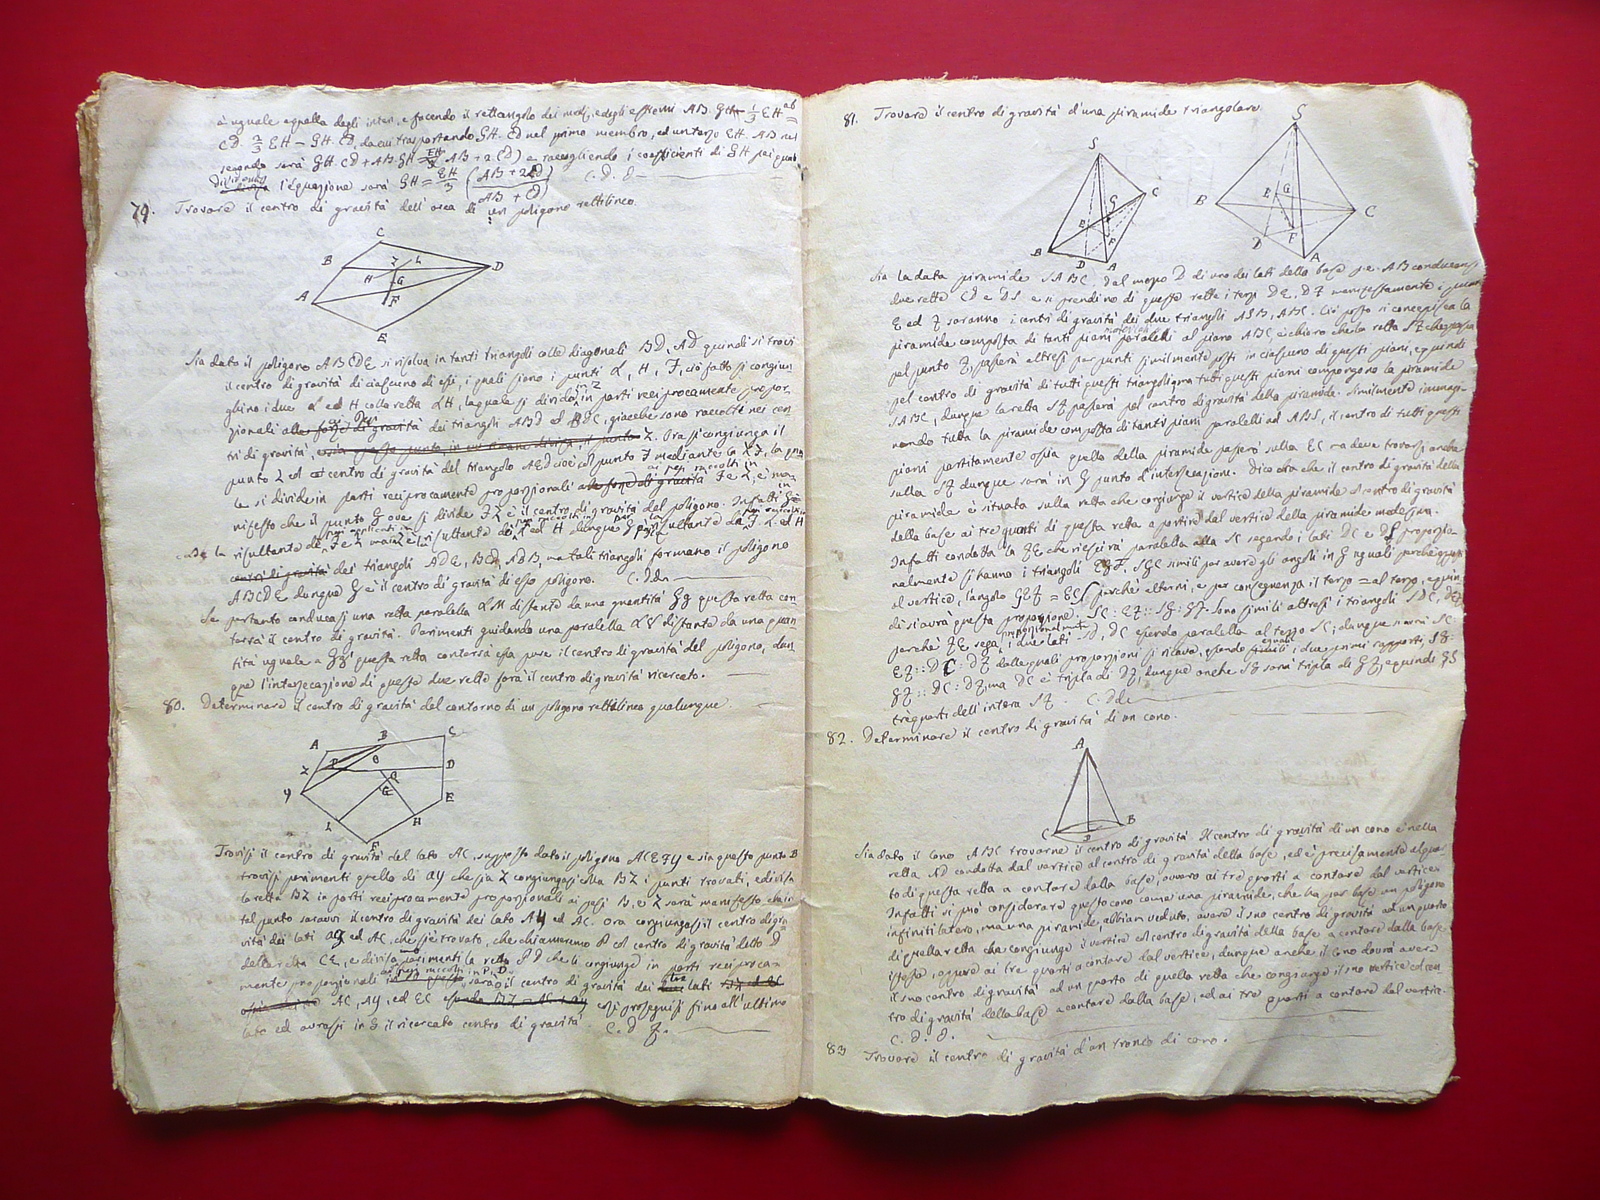 è uguale a quella degli interi, e facendo il rettangolo dei medj, e degli estremi AB. GH = 1/3 EH AB =
CD. 2/3 EH - GH. CD, da cui trasportando GH. CD nel primo membro, ed un terzo EH. AB nel
secondo sarà GH. CD + AB. GH = EH/3 (AB + 2 CD) e raccogliendo i coefficienti di GH pei quali
dividendo l'equazione sarà GH = EH/3 (AB + 2CD / AB + CD) C. D. D.
79. Trovare il centro di gravità dell'area di un poligono rettilineo.
C
B I L D
H G
A F
E
Sia dato il poligono ABCDE si risolva in tanti triangoli colle diagonali BD, AD quindi si trovi
il centro di gravità di ciascuno di essi, i quali siano i punti L, H, F, ciò fatto si congiun
ghino i due L ed H colla retta LH, la quale si divida in Z in parti reciprocamente propor-
zionali dei triangoli ABD ed BDC, giacchè sono raccolti nei cen
tri di gravità, Z. Ora si congiunga il
punto Z ed il centro di gravità del triangolo AED cioè col punto F mediante la ZF, la qua
le si divide in parti reciprocamente proporzionali ai pesi raccolti in F e Z, è ma
nifesto che il punto G ove si divide FZ è il centro di gravità del poligono. Infatti G è
la risultante dei F e Z ma Z è la risultante di L ed H dunque G è risultante di F L ed H
centri di gravità dei triangoli ADE, BCD, ADB, ma tali triangoli formano il poligono
ABCDE dunque G è il centro di gravità di esso poligono. C. D. D.
Se pertanto conducasi una retta parallela LM distante da una quantità Gg questa retta con-
terrà il centro di gravità. Parimenti guidando una paralella distante da una quan-
tità uguale a Gg' questa retta conterrà essa pure il centro di gravità del poligono, dun
que l'intersecazione di queste due rette sarà il centro di gravità ricercato.
80. Determinare il centro di gravità del contorno di un poligono rettilineo qualunque.
A B C
Z P O D
Y G E
L H
F
Trovisi il centro di gravità del lato AC, supposto dato il poligono ACEFY e sia questo punto B
trovisi parimenti quello di AY che sia Z congiungasi colla BZ i punti trovati, e divisa
la retta BZ in parti reciprocamente proporzionali ai pesi B, e Z sarà manifesto che in
tal punto saravvi il centro di gravità dei lato AY ed AC. Ora congiungasi il centro di gra
vità dei lati AY ed AC, che si è trovato, che chiameremo P col centro di gravità detto D
della retta CE, e divisa parimenti la retta PD che li congiunge in parti reciproca
mente proporzionali ai pesi raccolti in P, D sarà il centro di gravità dei tre lati
AC, AY, ed EC e si prosegui fino all'ultimo
lato ed avrassi in G il ricercato centro di gravità. C. D. F.
81. Trovare il centro di gravità d'una piramide triangolare
S S
C B E G C
E G F
B D A D F A
Sia la data piramide SABC. Dal mezzo D di uno dei lati della base p.e. AB conducansi
due rette CD e DS e si prendino di queste rette i terzi DE, DF manifestamente i punti
E ed F saranno i centri di gravità dei due triangoli ASB, ABC. Ciò posto si concepisca la
piramide composta di tanti piani materiali paralelli al piano ABC, è chiaro che la retta SF che passa
pel punto F, passerà altresì per punti similmente posti in ciascuno di questi piani, e quindi
pel centro di gravità di tutti questi triangoli, ma tutti questi piani compongono la piramide
SABC, dunque la retta SF passerà pel centro di gravità della piramide. Similmente immagi-
nando tutta la piramide composta di tanti piani paralelli ad ABS, il centro di tutti questi
piani partitamente ossia quello della piramide passerà sulla EC ma deve trovarsi anche
sulla SF dunque sarà in G punto d'intersecazione. Dico ora che il centro di gravità della
piramide è situata sulla retta che congiunge il vertice della piramide al centro di gravità
della base ai tre quarti di questa retta a partire dal vertice della piramide medesima.
Infatti condotta la FE che riescirà paralella alla SC segando i lati DC e DS proporzio-
nalmente si hanno i triangoli EGF, SGC simili per avere gli angoli in G uguali perchè opposti
al vertice, l'angolo GEF = GCS perchè alterni, e per conseguenza il terzo = al terzo, e quin
di si avrà questa proporzione. SC: EF:: SG: GF. Sono simili altresì i triangoli SDC, DEF
perchè FE sega proporzionalmente i due lati SD, DC essendo paralella al terzo SC; dunque starà SC:
EF:: DC: DF dalle quali proporzioni si ricava, essendo uguali i due primi rapporti, SG:
GF:: DC: DF, ma DC è tripla di DF, dunque anche SG sarà tripla di GF, e quindi GS
trè quarti dell'intera SF. C. D. D.
82. Determinare il centro di gravità di un cono.
A
C D B
Sia dato il cono ABC trovarne il centro di gravità. Il centro di gravità di un cono è nella
retta AD condotta dal vertice al centro di gravità della base, ed è precisamente al quar
to di questa retta a contare dalla base, ovvero ai tre quarti a contare dal vertice.
Infatti si può considerare questo cono come una piramide, che ha per base un poligono
infinitilatero, ma una piramide, abbiam veduto, avere il suo centro di gravità ad un quarto
di quella retta che congiunge il vertice col centro di gravità della base a contare dalla base
istessa, oppure ai tre quarti a contare dal vertice, dunque anche il cono dovrà avere
il suo centro di gravità ad un quarto di quella retta che congiunge il suo vertice col cen-
tro di gravità della base a contare dalla base, ed ai tre quarti a contare dal vertice.
C. D. D.
83 Trovare il centro di gravità d'un tronco di cono.